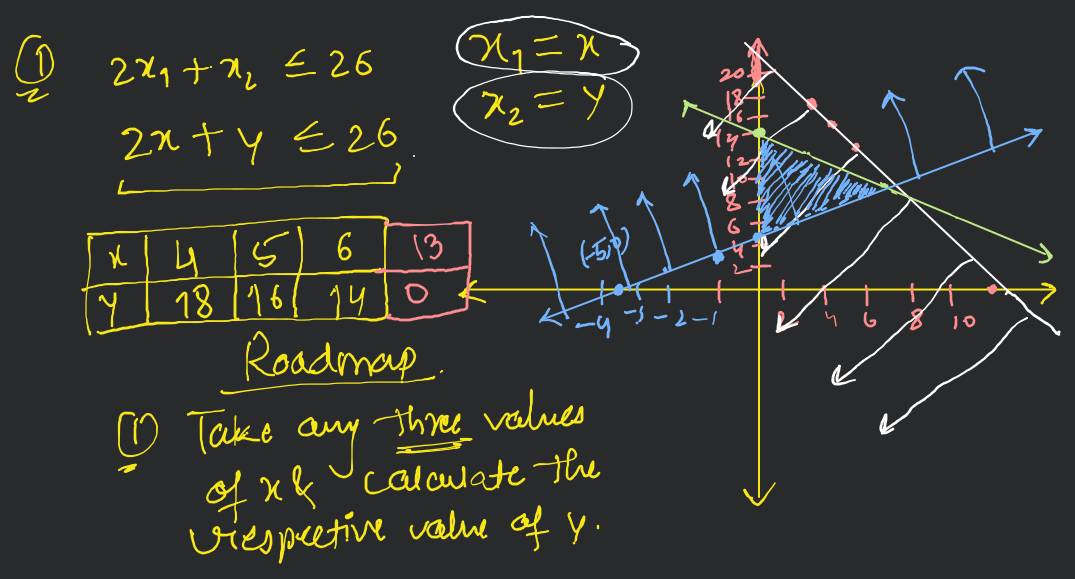 ① 2x₁ + x₂ ≤ 26
2x + y ≤ 26
x₁ = x
x₂ = y
x 4 5 6 13
y 18 16 14 0
Roadmap.
① Take any three values
of x & calculate the
respective value of y.
20
18
16
14
12
10
8
6
4
2
-4 -3 -2 -1 2 4 6 8 10